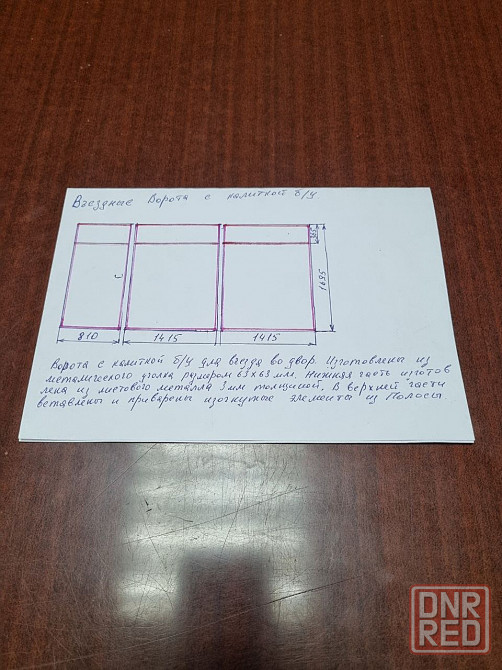 Вьездные Ворота с калиткой б/у
1695
810
1415
1415
Ворота с калиткой б/у для вьезда во двор. Изготовлены из
металического уголка размером 63х63 мм. Нижняя часть изготов
лена из листового металла 3 мм толщиной. В верхней части
вставлены и приварены изогнутые элементы из Полосы
DNR
RED